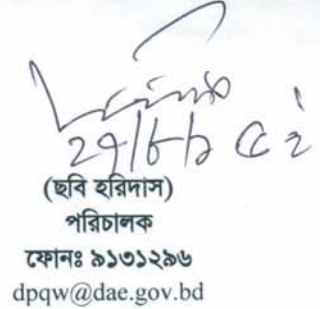 (ছবি হরিদাস)
পরিচালক
ফোনঃ ৯১৩১২৯৬
dpqw@dae.gov.bd